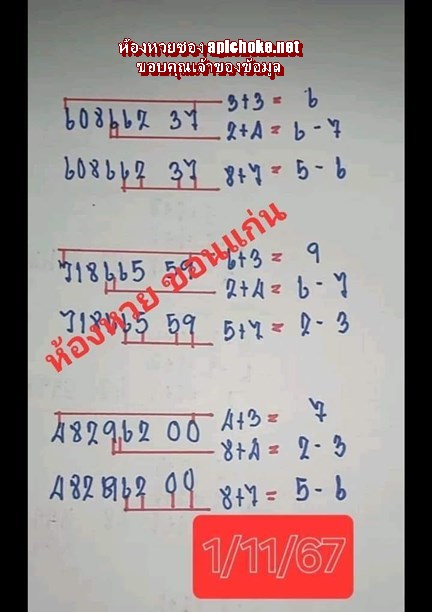 ห้องหวยซอง apichoke.net
ขอบคุณเจ้าของข้อมูล
608662 37 3+3 = 6
2+4 = 6 - 7
608662 37 8+7 = 5 - 6
718665 59 6+3 = 9
2+4 = 6 - 7
718665 59 5+7 = 2 - 3
ห้องหวย ขอนแก่น
482962 00 4+3 = 7
8+4 = 2 - 3
482962 00 8+7 = 5 - 6
1/11/67